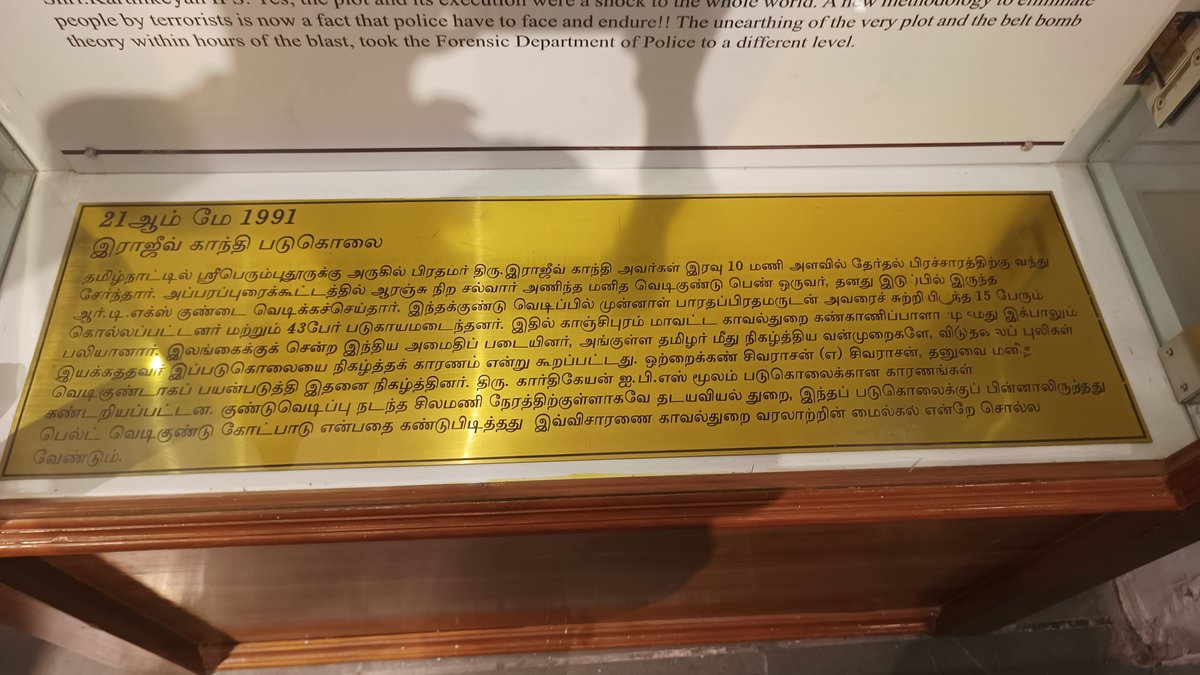 people by terrorists is now a fact that police have to face and endure!! The unearthing of the very plot and the belt bomb
theory within hours of the blast, took the Forensic Department of Police to a different level.
21ஆம் மே 1991
இராஜீவ் காந்தி படுகொலை
தமிழ்நாட்டில் ஸ்ரீபெரும்புதூருக்கு அருகில் பிரதமர் திரு.இராஜீவ் காந்தி அவர்கள் இரவு 10 மணி அளவில் தேர்தல் பிரச்சாரத்திற்கு வந்து
சேர்ந்தார். அப்பரப்புரைக்கூட்டத்தில் ஆரஞ்சு நிற சல்வார் அணிந்த மனித வெடிகுண்டு பெண் ஒருவர், தனது இருந்த
ஆர்.டி.எக்ஸ் குண்டை வெடிக்கச்செய்தார். இந்தக்குண்டு வெடிப்பில் முன்னாள் பாரதப்பிரதமருடன் அவரைச் சுற்றி 15 பேரும்
கொல்லப்பட்டனர் மற்றும் 43பேர் படுகாயமடைந்தனர். இதில் காஞ்சிபுரம் மாவட்ட காவல்துறை இக்பாலும்
பலியானார். இலங்கைக்குச் சென்ற இந்திய அமைதிப் படையினர், அங்குள்ள தமிழர் மீது நிகழ்த்திய வன்முறைகளே, புலிகள்
இயக்கத்தவர் இப்படுகொலையை நிகழ்த்தக் காரணம் என்று கூறப்பட்டது. ஒற்றைக்கண் சிவராசன் (எ) சிவராசன், தனுவை
வெடிகுண்டாகப் பயன்படுத்தி இதனை நிகழ்த்தினர். திரு. கார்திகேயன் ஐ.பி.எஸ் மூலம் படுகொலைக்கான காரணங்கள்
கண்டறியப்பட்டன. குண்டுவெடிப்பு நடந்த சிலமணி நேரத்திற்குள்ளாகவே தடயவியல் துறை, இந்தப் படுகொலைக்குப் பின்னாலிருந்தது
பெல்ட் வெடிகுண்டு கோட்பாடு என்பதை கண்டுபிடித்தது இவ்விசாரணை காவல்துறை வரலாற்றின் மைல்கல் என்றே சொல்ல
வேண்டும்.